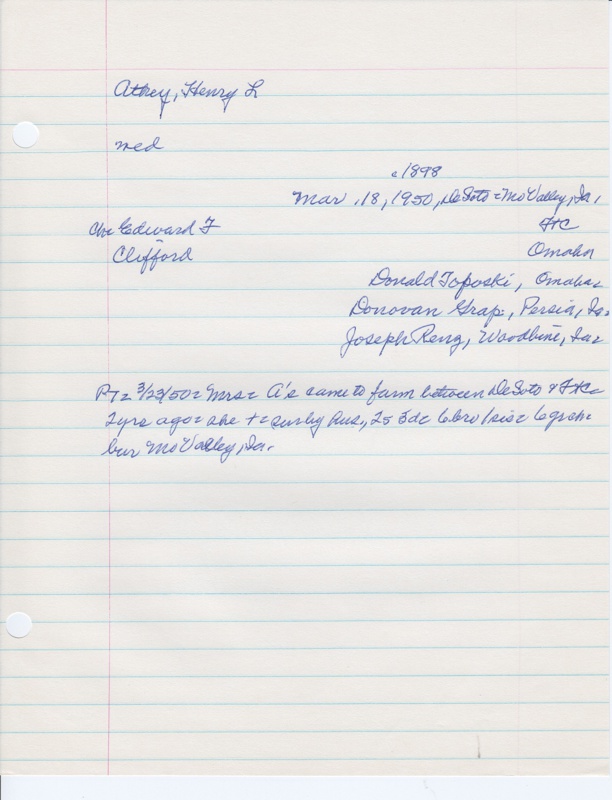 Athey, Henry L
med
c1898
Mar. 18, 1950, DeSoto = Mo Valley, Ia.
Ch = Edward F FtC
Clifford Omaha
Donald Toposki, Omaha =
Donovan Grap., Persia, Ia =
Joseph Reng, Woodbine, Ia =
PT = 3/23/50 = Mrs = A's came to farm between DeSoto & FtC =
2yrs ago = she += surv by hus., 2s 3d = 6bro 1sis = 6grch =
bur Mo Valley, Ia.